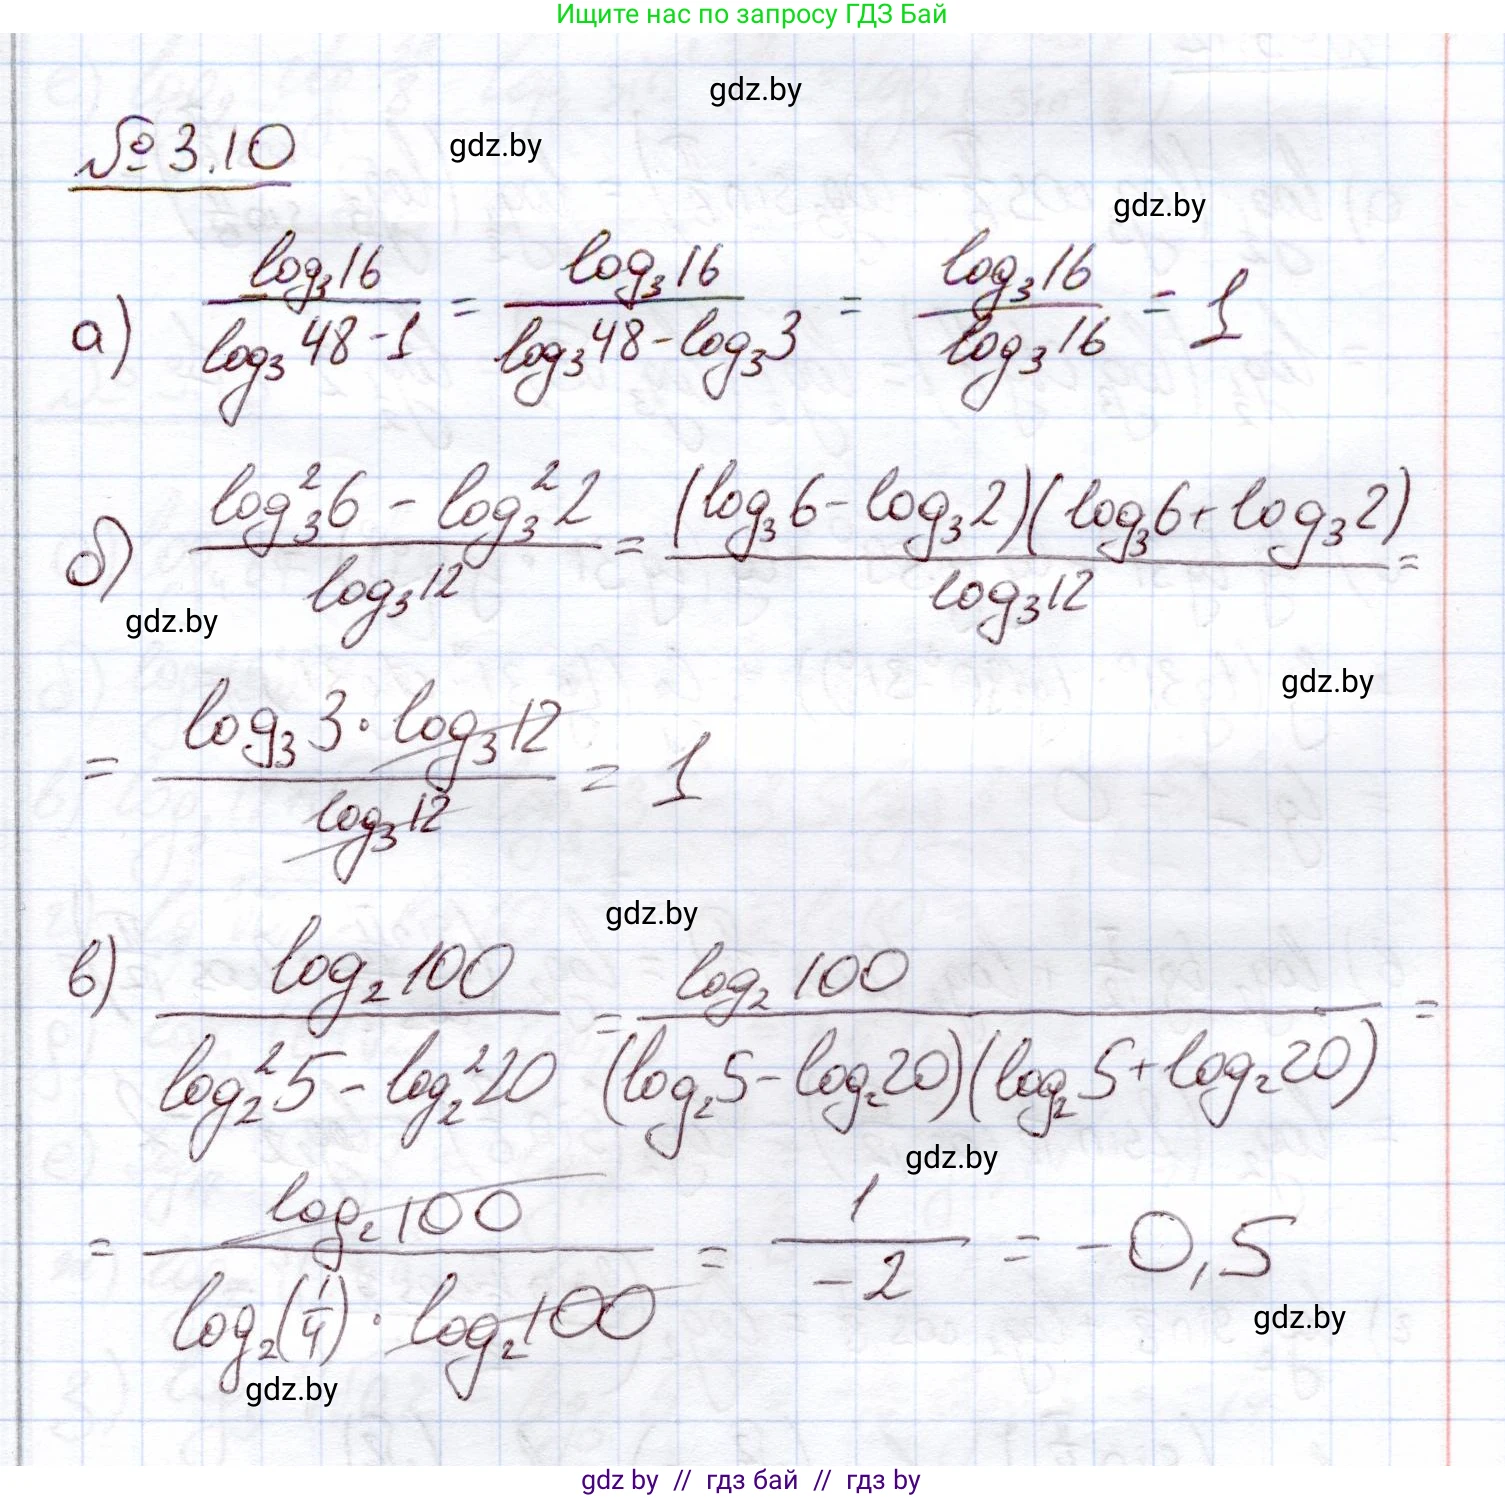 Ищите нас по запросу ГДЗ Бай
gdz.by
№ 3.10 gdz.by
gdz.by
а) log₃16 / (log₃48 - 1) = log₃16 / (log₃48 - log₃3) = log₃16 / log₃16 = 1
б) (log₃²6 - log₃²2) / log₃12 = (log₃6 - log₃2)(log₃6 + log₃2) / log₃12 =
gdz.by
gdz.by
= log₃3 · log₃12 / log₃12 = 1
gdz.by
в) log₂100 / (log₂²5 - log₂²20) = log₂100 / (log₂5 - log₂20)(log₂5 + log₂20) =
gdz.by
= log₂100 / log₂(1/4) · log₂100 = 1 / -2 = -0,5
gdz.by
gdz.by
gdz by // гдз бай // гдз by